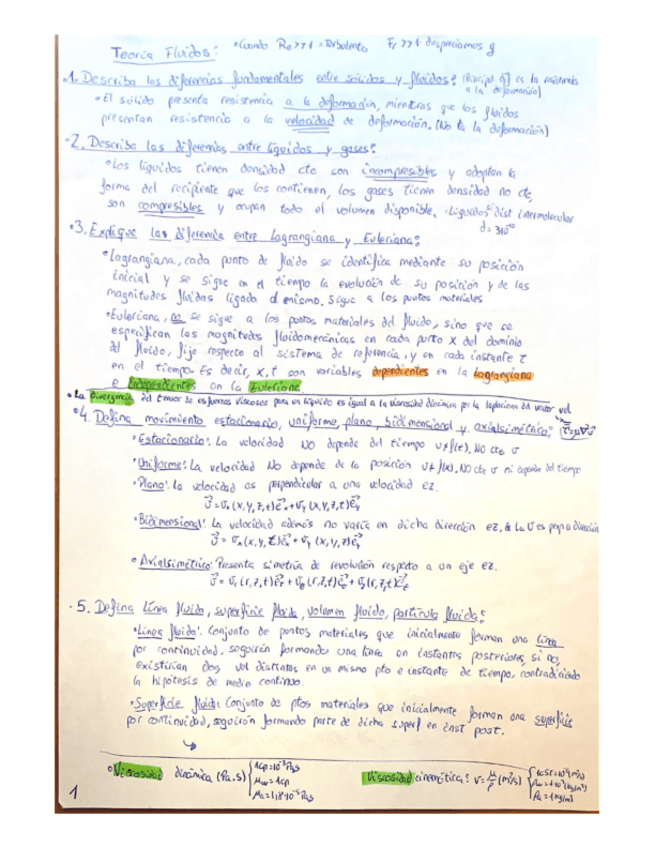 Teoría Fluidos: •Cuando Re>>1 = Turbulento Fr >>1 despreciamos g
•1. Describa las diferencias fundamentales entre sólidos y fluidos: (Principal q es la resistencia
a la deformación)
•El sólido presenta resistencia a la deformación, mientras que los fluidos
presentan resistencia a la velocidad de deformación. (No a la deformación)
•2. Describa las diferencias entre líquidos y gases:
•Los líquidos tienen densidad cte son incompresibles y adoptan la
forma del recipiente que los contienen, los gases tienen densidad no cte,
son compresibles y ocupan todo el volumen disponible. •Líquidos: dist intermolecular
•3. Explique las diferencia entre Lagrangiana y Euleriana:
•Lagrangiana, cada punto de fluido se identifica mediante su posición
inicial y se sigue en el tiempo la evolución de su posición y de las
magnitudes fluidas ligada al mismo, sigue a los puntos materiales
•Euleriana, no se sigue a los puntos materiales del fluido, sino que se
especifican las magnitudes fluidomecánicas en cada punto x del dominio
del fluido, fijo respecto al sistema de referencia, y en cada instante t
en el tiempo. Es decir, x, t son variables dependientes en la Lagrangiana
e independientes en la Euleriana.
•La divergencia del tensor de esfuerzos viscosos para un líquido es igual a la viscosidad dinámica por la laplaciana del vector vel
•4. Defina movimiento estacionario, uniforme, plano, bidimensional y axialsimétrico:
•Estacionario: La velocidad NO depende del tiempo v≠f(t), NO cte v
•Uniforme: La velocidad No depende de la posición v≠f(x), NO cte v ni depende del tiempo
•Plano: la velocidad es perpendicular a una velocidad ez.
v⃗ = vx (x,y,z,t)e⃗x + vy (x,y,z,t)e⃗y
•Bidimensional: La velocidad además no varía en dicha dirección ez, & La v es perp a dirección
•Axialsimétrico: Presenta simetría de revolución respecto a un eje ez.
v⃗ = vr (r,z,t)e⃗r + vθ (r,z,t)e⃗θ + vz(r,z,t)e⃗z
•5. Defina Línea fluida, superficie fluida, volumen fluido, partícula fluida:
•Línea fluida: Conjunto de puntos materiales que inicialmente forman una línea
por continuidad, seguirán formando una línea en instantes posteriores, si no,
existirían dos vel distintas en un mismo pto e instante de tiempo, contradiciendo
la hipótesis de medio continuo.
•Superficie fluida: Conjunto de ptos materiales que inicialmente forman una superficie
por continuidad, seguirán formando parte de dicha superf en inst post.
•Viscosidad dinámica (Pa.s) Viscosidad cinemática: ν = μ/ρ (m²/s)
1